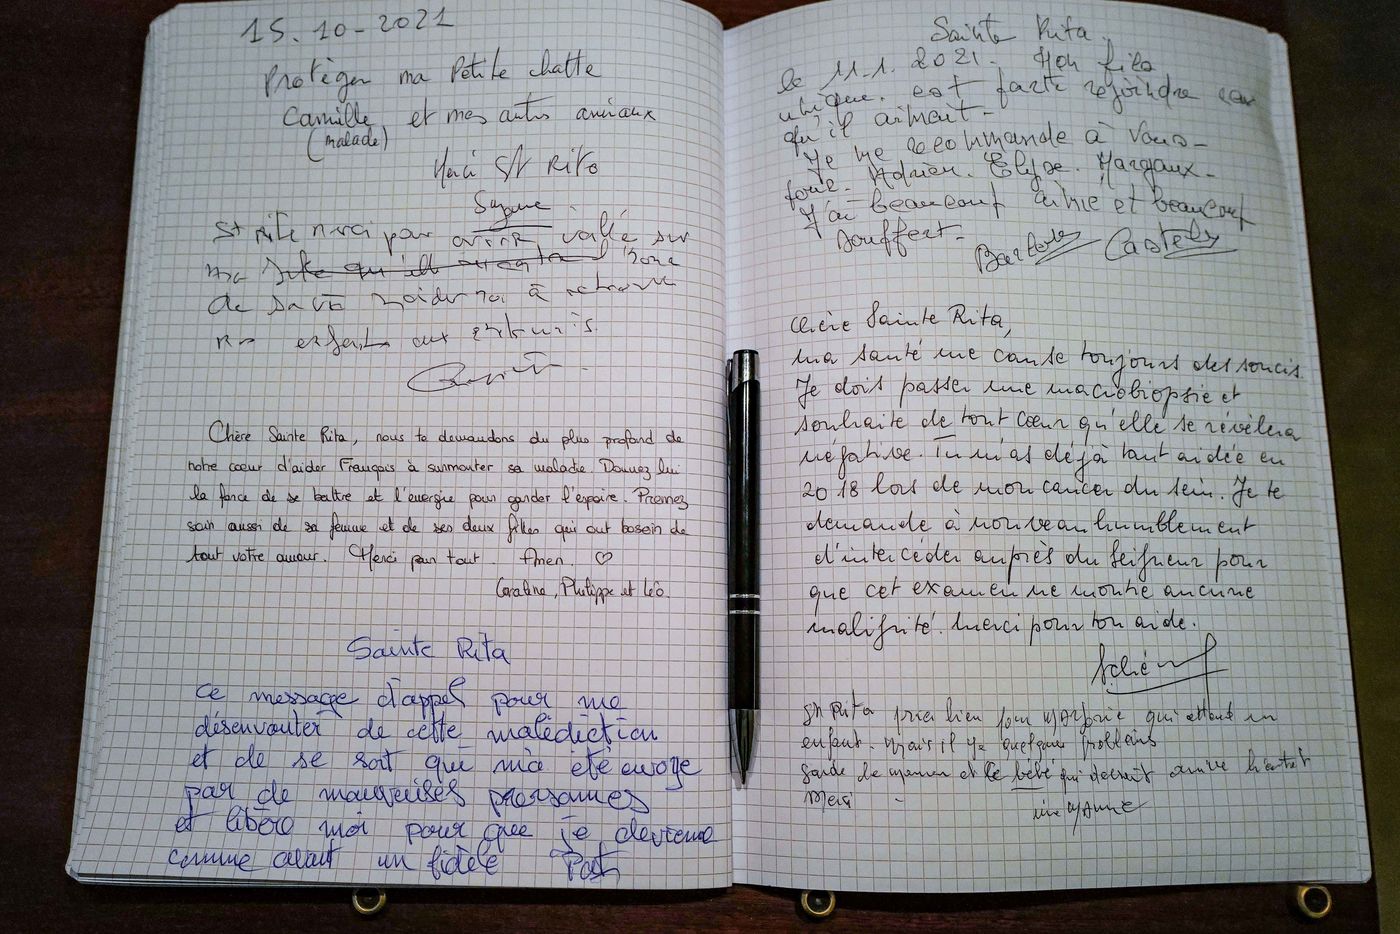 15.10-2021
Protéger ma Petite chatte
Camille et mes autres animaux
(malade)
Merci St Rita
Suzanne
St Rita merci pour avoir veillé sur
ma
de sa vie
enfants aux
Chère Sainte Rita, nous te demandons du plus profond de
notre coeur d'aider François à surmonter sa maladie. Donnez lui
la force de se battre et l'énergie pour garder l'espoire. Prennez
soin aussi de sa femme et de ses deux filles qui ont besoin de
tout votre amour. Merci pour tout. Amen. ♡
Caroline, Philippe et Léo.
Sainte Rita
Ce message d'appel pour me
désenvouter de cette malédiction
et de se sort qui m'a été envoyé
par de mauvaises personnes
et libère moi pour que je devienne
comme avant un fidèle
Sainte Rita.
le 11-1. 2021. Mon fils
unique. est partie rejoindre ceux
qu'il aimait-
Je me recommande à Vous-
Adrien. Elyse. Margaux-
J'ai beaucoup aimé et beaucoup
souffert-
Chère Sainte Rita,
ma santé me cause toujours des soucis.
Je dois passer une macrobiopsie et
souhaite de tout coeur qu'elle se révèlera
négative. Tu m'as déjà tant aidée en
2018 lors de mon cancer du sein. Je te
demande à nouveau humblement
d'intercéder auprès du Seigneur pour
que cet examen ne montre aucune
malignité. Merci pour ton aide.
St Rita priez bien pour Marjorie qui attend un
enfant. Mais il y a quelques problèmes
garde la maman et le bébé qui devrait arrivé
Merci